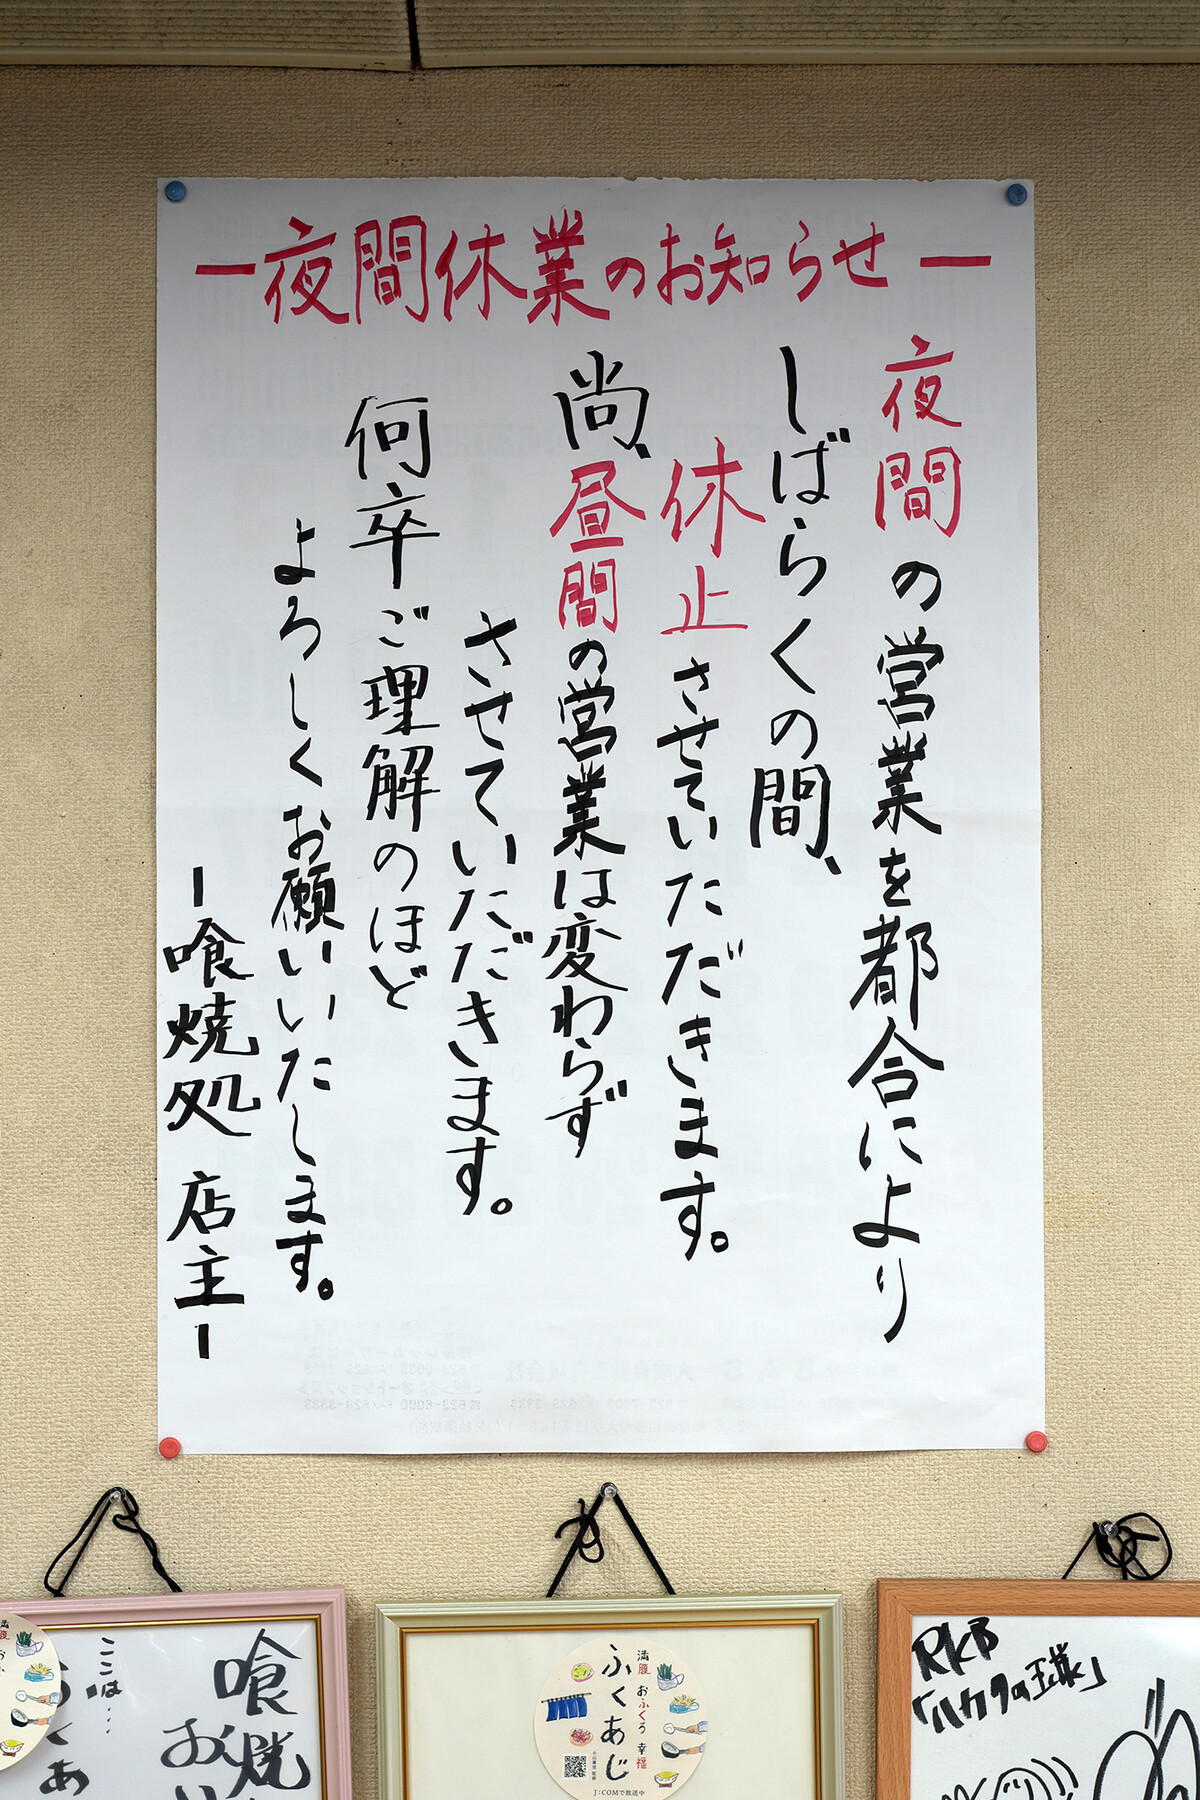 ー夜間休業のお知らせー
夜間の営業を都合により
しばらくの間、
休止させていただきます。
尚、昼間の営業は変わらず
させていただきます。
何卒ご理解のほど
よろしくお願いいたします。
ー喰焼処 店主ー
ここは…
喰焼
満腹 おふくろ 幸福
ふくあじ
J:COMで放送中
RKB
「ハカタの王様」